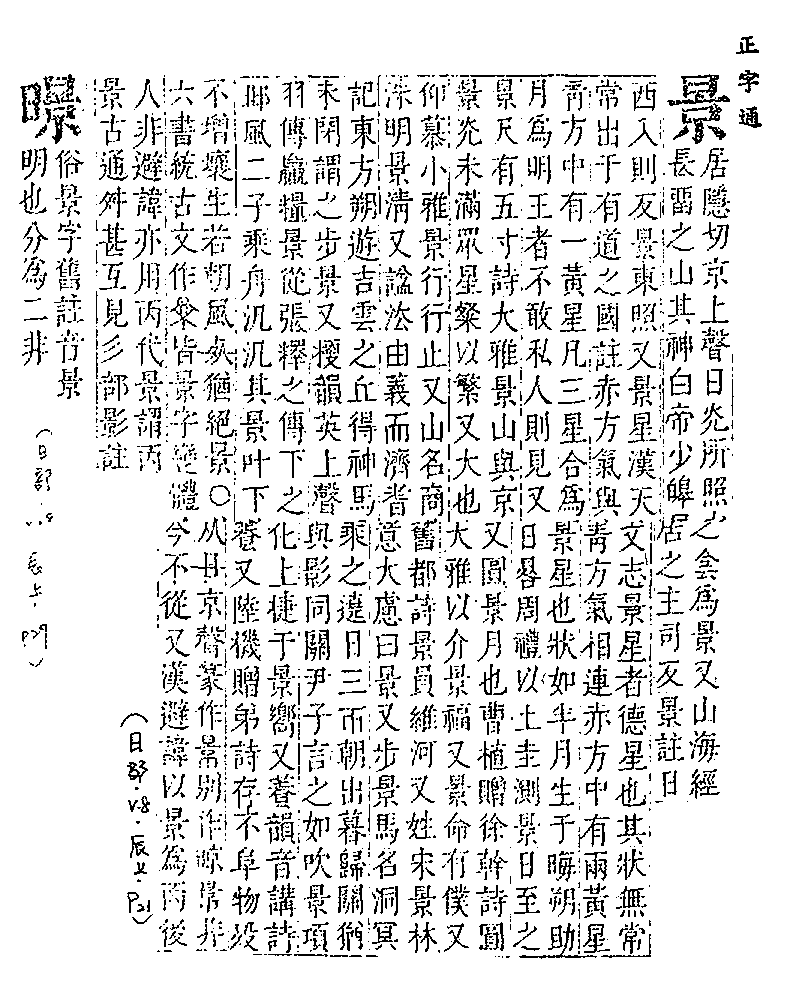 正字通
景
居隱切京上聲日光所照之爲景又山海經
長畱之山其神白帝少皞居之主司反景註日
西入則反景東照又景星漢天文志景星者德星也其狀無常
常出于有道之國註赤方氣與靑方氣相連赤方中有兩黃星
靑方中有一黃星凡三星合爲景星也狀如半月生于晦朔助
月爲明王者不敢私人則見又日晷周禮以土圭測景日至之
景尺有五寸詩大雅景山與京又圓景月也曹植贈徐幹詩圓
景光未滿眾星粲以繁又大也大雅以介景福又景命有僕又
仰慕小雅景行行止又山名商舊都詩景員維河又姓宋景林
洙明景淸又諡法由義而濟耆意大慮曰景又步景馬名洞冥
記東方朔遊吉雲之丘得神馬乘之遶日三帀朝出暮歸關猶
未閉謂之步景又梗韻英上聲與影同關尹子言之如吹景項
羽傳贏糧景從張釋之傳下之化上捷于景嚮又養韻音講詩
邶風二子乘舟汎汎其景叶下養又陸機贈弟詩存不阜物歿
不增壤生若朝風死猶絕景○从日京聲篆作景別作並非
六書統古文作皆景字變體今不從又漢避諱以景爲丙後
人非避諱亦用丙代景謂丙
景古通舛甚互見彡部影註
(日部.v8.辰上.P21)
暻
俗景字舊註音景
明也分爲二非
(日部.v8.辰上.P29)